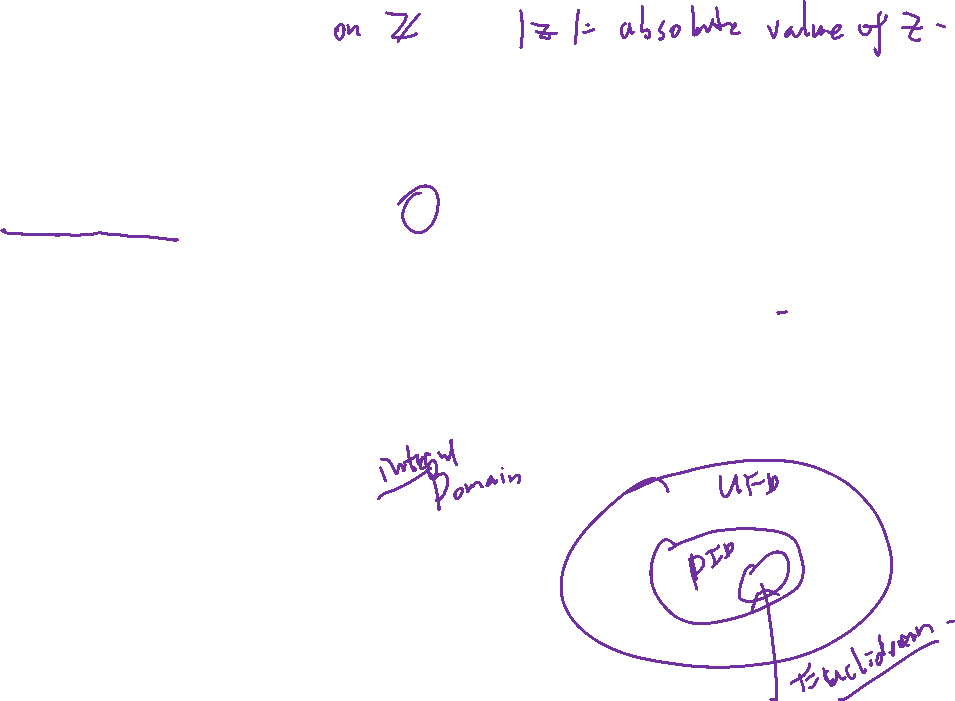 on ℤ |z| = absolute value of z.
integral
Domain
UFD
PID
Euclidean